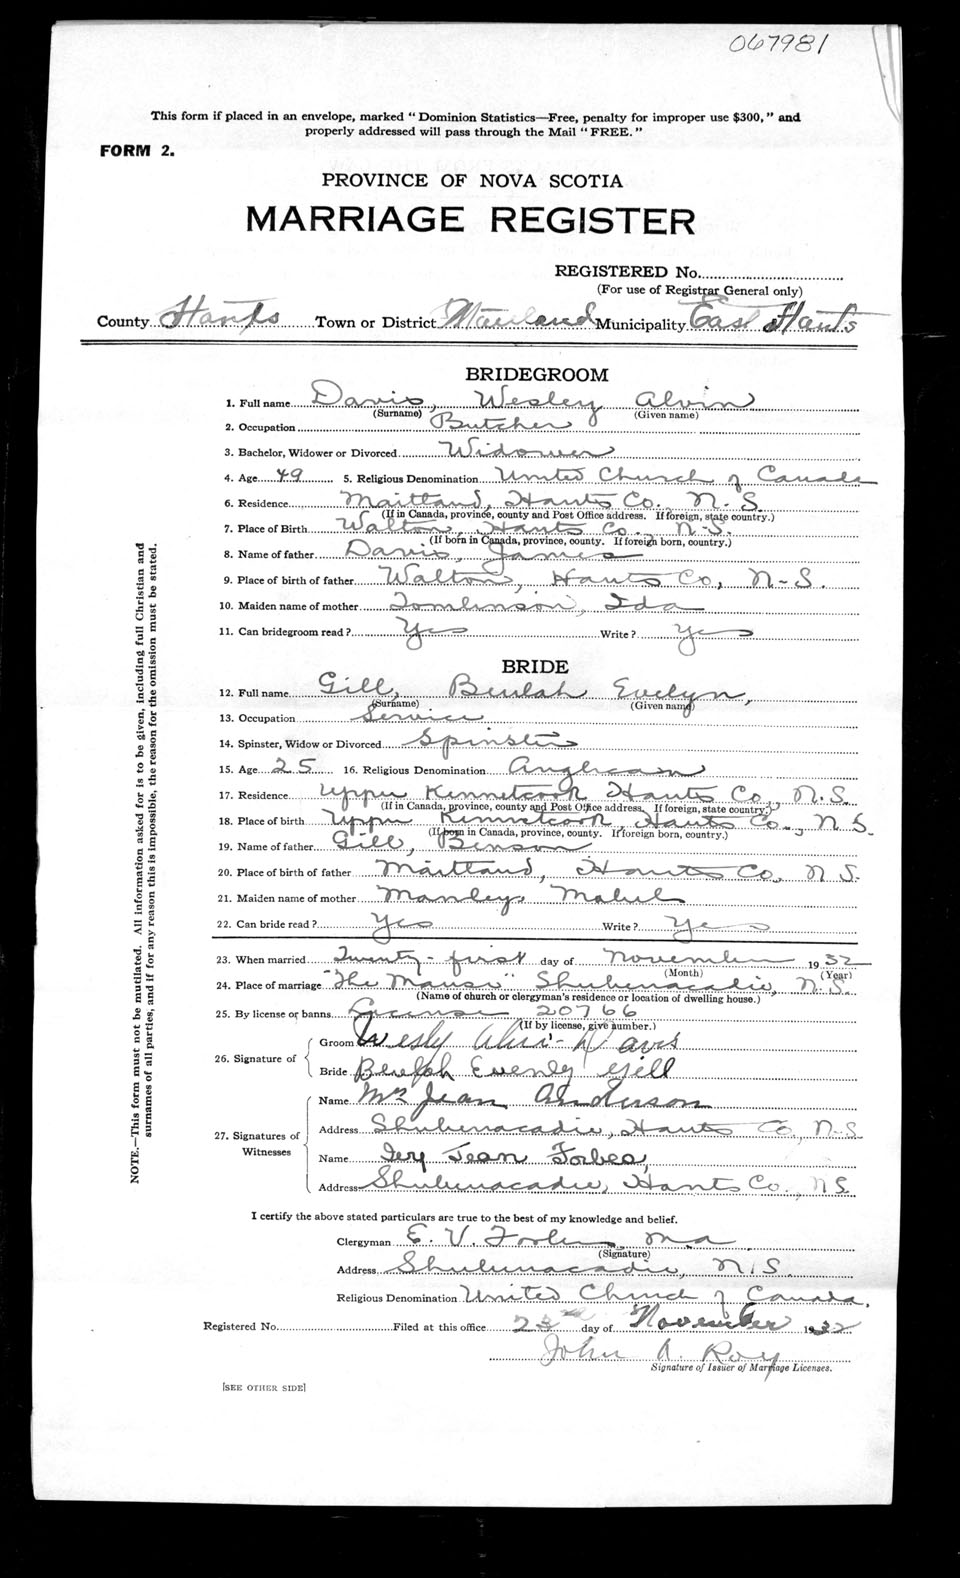 067981
This form if placed in an envelope, marked "Dominion Statistics—Free, penalty for improper use $300," and
properly addressed will pass through the Mail "FREE."
FORM 2.
PROVINCE OF NOVA SCOTIA
MARRIAGE REGISTER
REGISTERED No.
(For use of Registrar General only)
County Hants Town or District Maitland Municipality East Hants
BRIDEGROOM
1. Full name Davis, Wesley Alvin
(Surname) (Given name)
2. Occupation Butcher
3. Bachelor, Widower or Divorced Widower
4. Age 49 5. Religious Denomination United Church of Canada
6. Residence Maitland, Hants Co. N.S.
(If in Canada, province, county and Post Office address. If foreign, state country.)
7. Place of Birth Walton, Hants Co. N.S.
(If born in Canada, province, county. If foreign born, country.)
8. Name of father Davis, James
9. Place of birth of father Walton, Hants Co, N-S.
10. Maiden name of mother Tomlinson, Ida
11. Can bridegroom read? Yes Write? Yes
BRIDE
12. Full name Gill, Beulah Evelyn,
(Surname) (Given name)
13. Occupation Service
14. Spinster, Widow or Divorced Spinster
15. Age 25 16. Religious Denomination Anglican
17. Residence Upper Kennetcook Hants Co, N.S.
(If in Canada, province, county and Post Office address. If foreign, state country.)
18. Place of birth Upper Kennetcook, Hants Co., N.S.
(If born in Canada, province, county. If foreign born, country.)
19. Name of father Gill, Benson
20. Place of birth of father Maitland, Hants Co, N S.
21. Maiden name of mother Manley, Mabel
22. Can bride read? Yes Write? Yes
23. When married Twenty-first day of November 1932
(Month) (Year)
24. Place of marriage "The Manse" Shubenacadie, N.S.
(Name of church or clergyman's residence or location of dwelling house.)
25. By license or banns License 20766
(If by license, give number.)
26. Signature of
Groom Wesly Davis
Bride Evenly Gill
27. Signatures of
Witnesses
Name Jean Anderson
Address Shubenacadie, Hants Co., N-S
Name Jean Forbes,
Address Shubenacadie, Hants Co., NS
I certify the above stated particulars are true to the best of my knowledge and belief.
Clergyman E. V. M.A.
(Signature)
Address Shubenacadie, N.S.
Religious Denomination United Church of Canada.
Registered No. Filed at this office day of November 1932
John A. Roy
Signature of Issuer of Marriage Licenses.
[SEE OTHER SIDE]
NOTE.—This form must not be mutilated. All information asked for is to be given, including full Christian and
surnames of all parties, and if for any reason this is impossible, the reason for the omission must be stated.